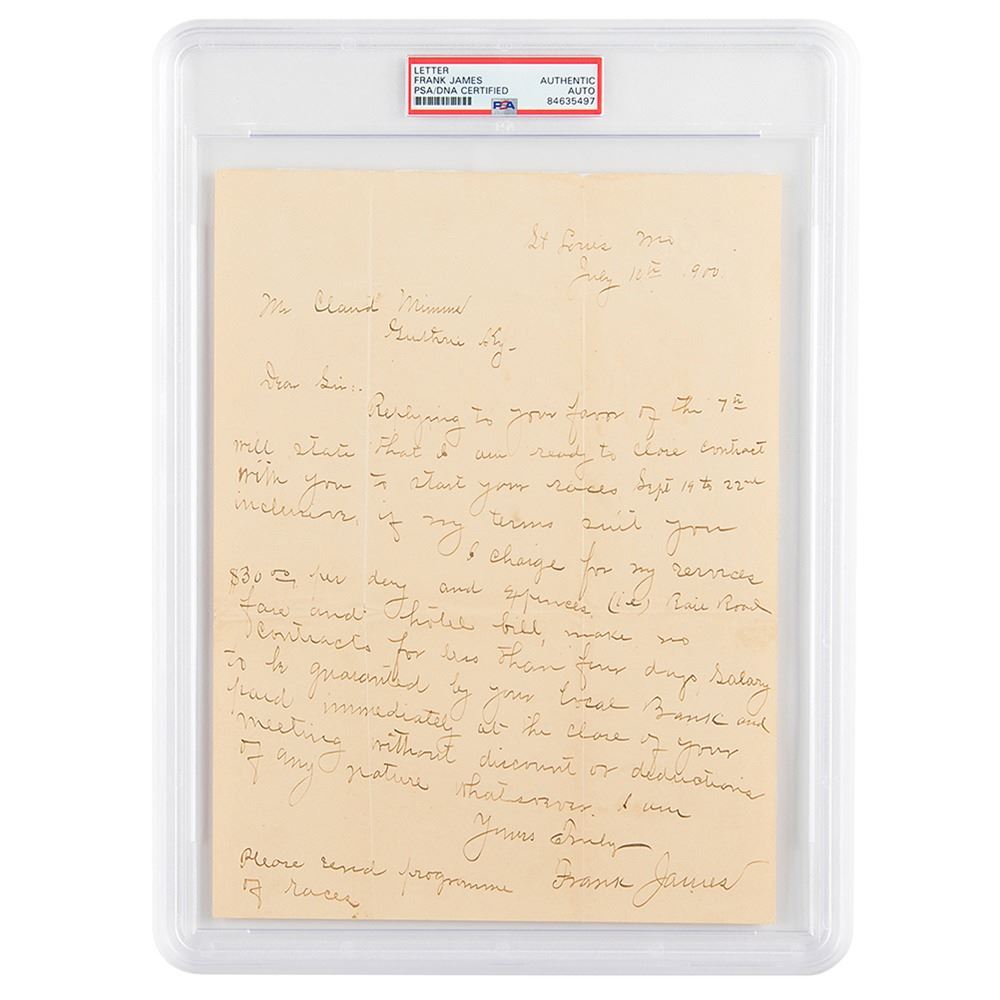 LETTER
FRANK JAMES
PSA/DNA CERTIFIED
AUTHENTIC
AUTO
84635497
PSA
St Louis Mo
July 10th 1900.
Mr Claud Mimms
Guthrie Ky-
Dear Sir:-
Replying to your favor of the 7th
will state that I am ready to close contract
with you to start your races Sept 19 to 22nd
inclusive, if my terms suit you
I charge for my services
$30 00 per day and expences (i e) Rail Road
fare and hotel bill, make no
contracts for less than four days, Salary
to be guaranted by your local Bank and
paid immediately at the close of your
meeting without discount or deductions
of any nature whatsoever. I am
Yours Truly
Frank James
Please send programme
of races